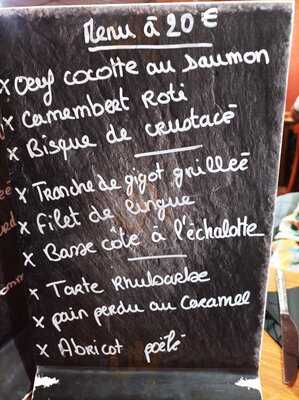 Menu à 20 €
x Oeuf cocotte au saumon
x Camembert Roti
x Bisque de crustacé
x Tranche de gigot grilleé
x filet de lingue
x Basse côte à l'échalotte
x Tarte Rhubarbe
x pain perdu au caramel
x Abricot poêlé